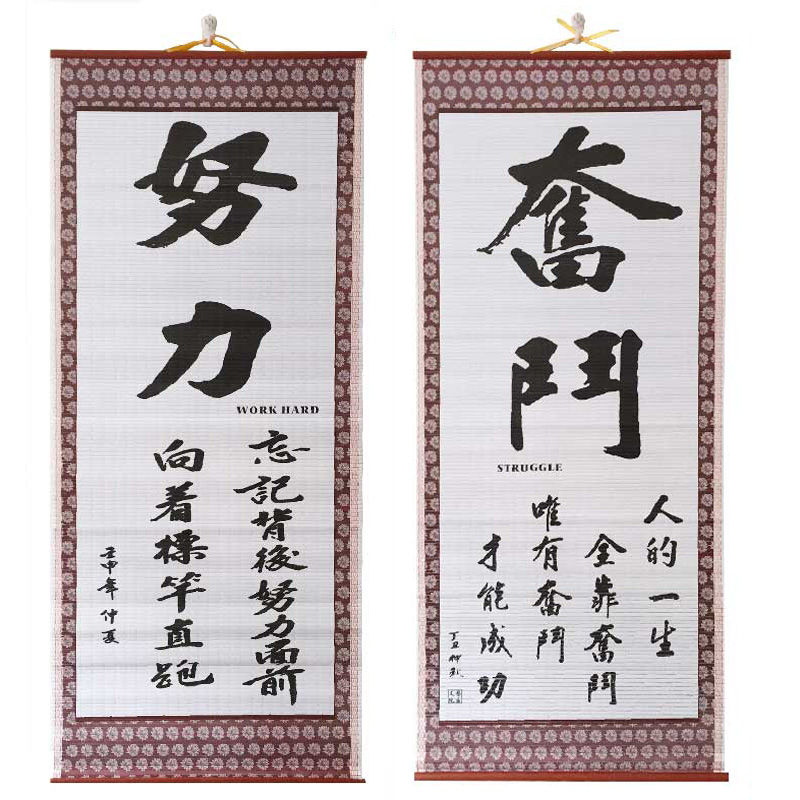 努力
WORK HARD
忘記背後努力面前
向着標竿直跑
壬申年仲夏
奮鬥
STRUGGLE
人的一生
全靠奮鬥
唯有奮鬥
才能成功
丁丑仲秋